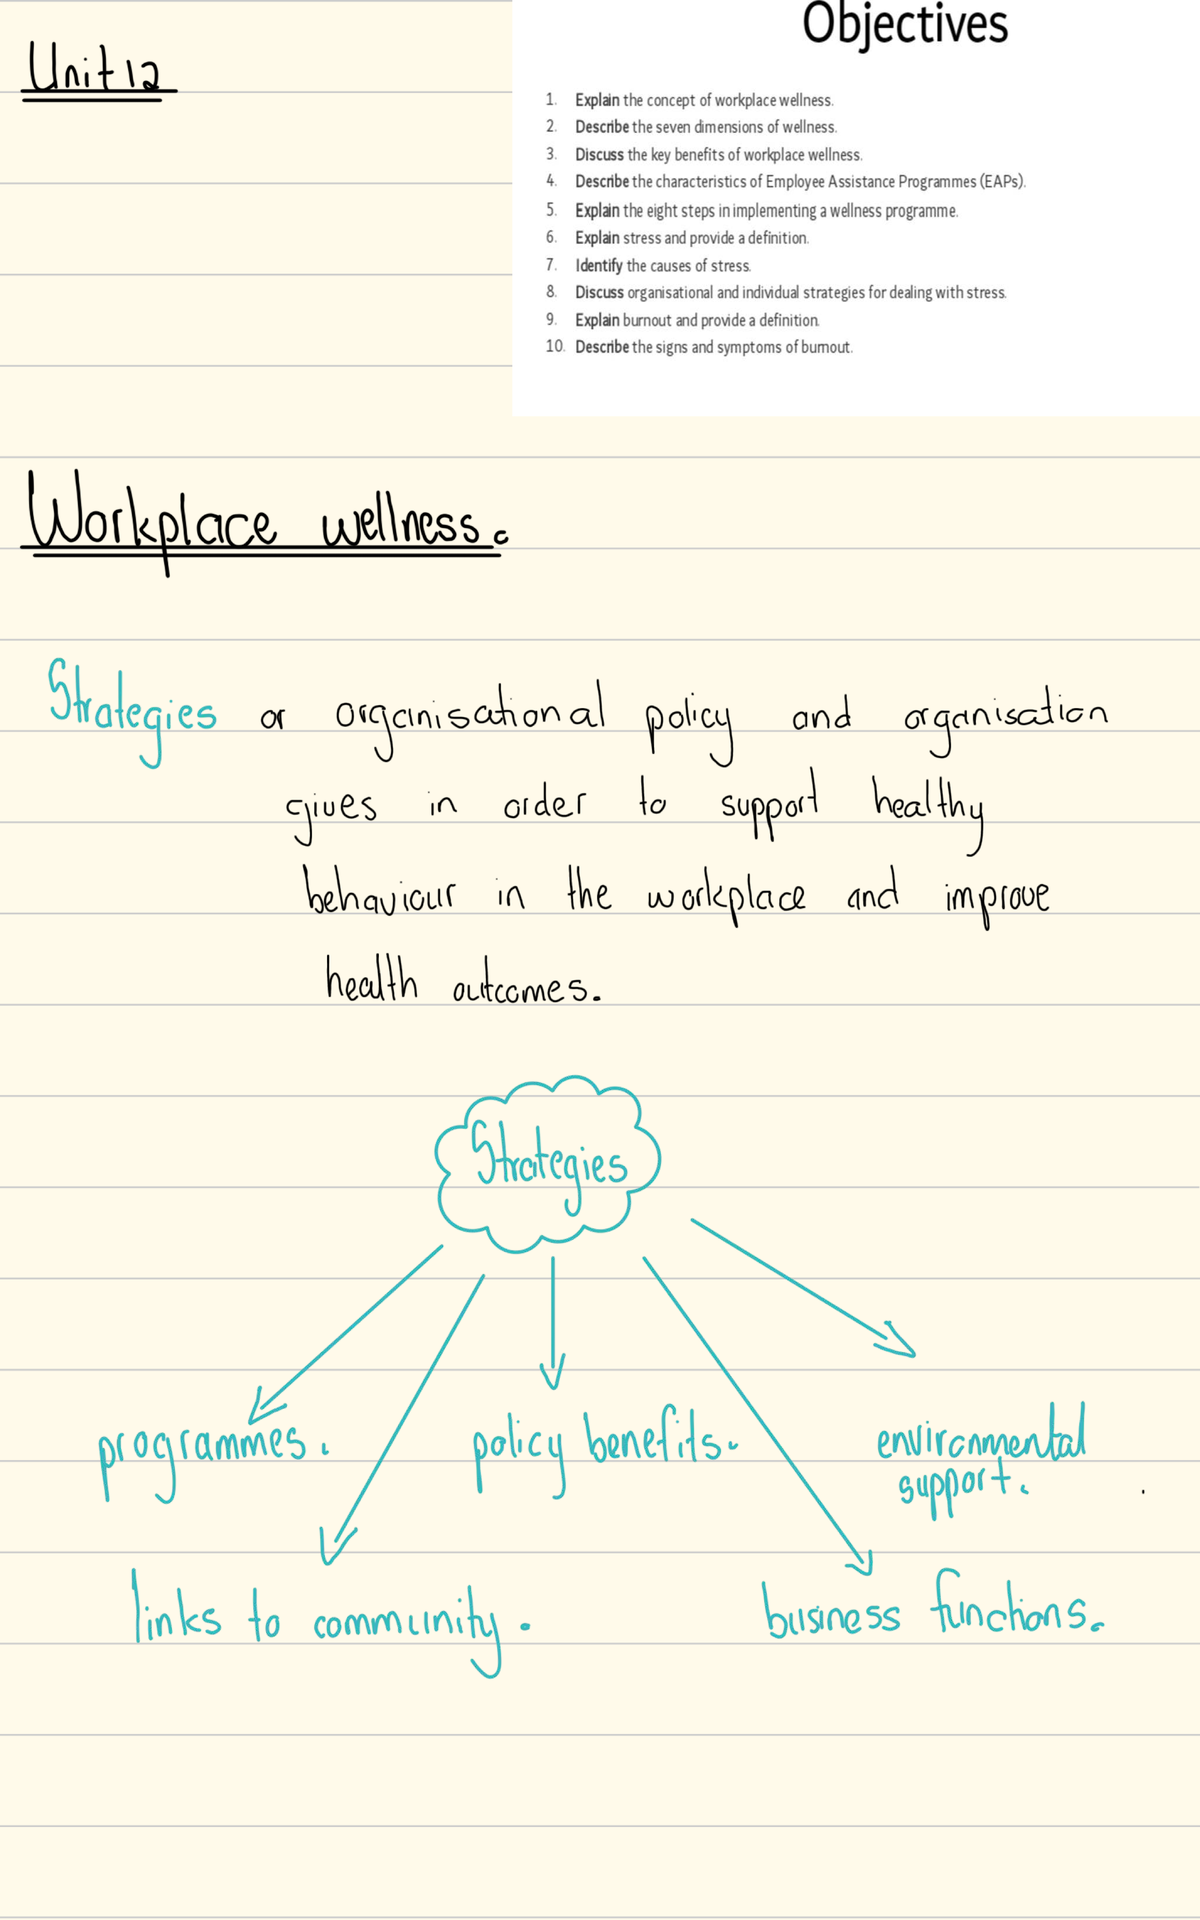 Unit 12
Objectives
1. Explain the concept of workplace wellness.
2. Describe the seven dimensions of wellness.
3. Discuss the key benefits of workplace wellness.
4. Describe the characteristics of Employee Assistance Programmes (EAPs).
5. Explain the eight steps in implementing a wellness programme.
6. Explain stress and provide a definition.
7. Identify the causes of stress.
8. Discuss organisational and individual strategies for dealing with stress.
9. Explain burnout and provide a definition.
10. Describe the signs and symptoms of burnout.
Workplace wellness.
Strategies or organisational policy and organisation
gives in order to support healthy
behaviour in the workplace and improve
health outcomes.
Strategies
programmes.
policy benefits.
environmental
support.
links to community.
business functions.